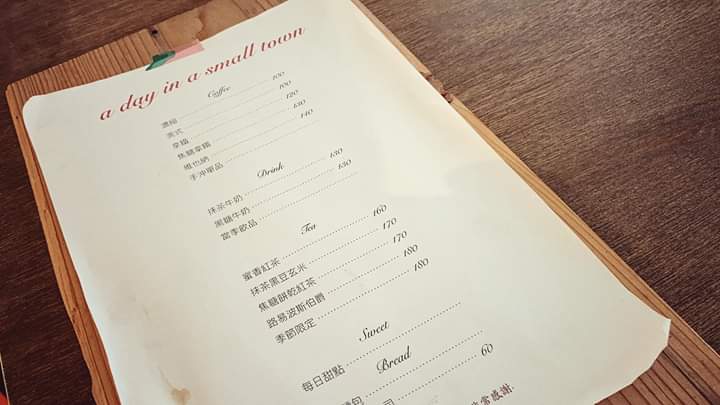 a day in a small town
Coffee
濃縮 100
美式 100
拿鐵 120
焦糖拿鐵 130
維也納 140
手沖單品
Drink
抹茶牛奶 130
黑糖牛奶 130
當季飲品
Tea
蜜香紅茶 160
抹茶黑豆玄米 170
焦糖餅乾紅茶 170
路易波斯伯爵 180
季節限定 180
Sweet
每日甜點
Bread
60
感謝.